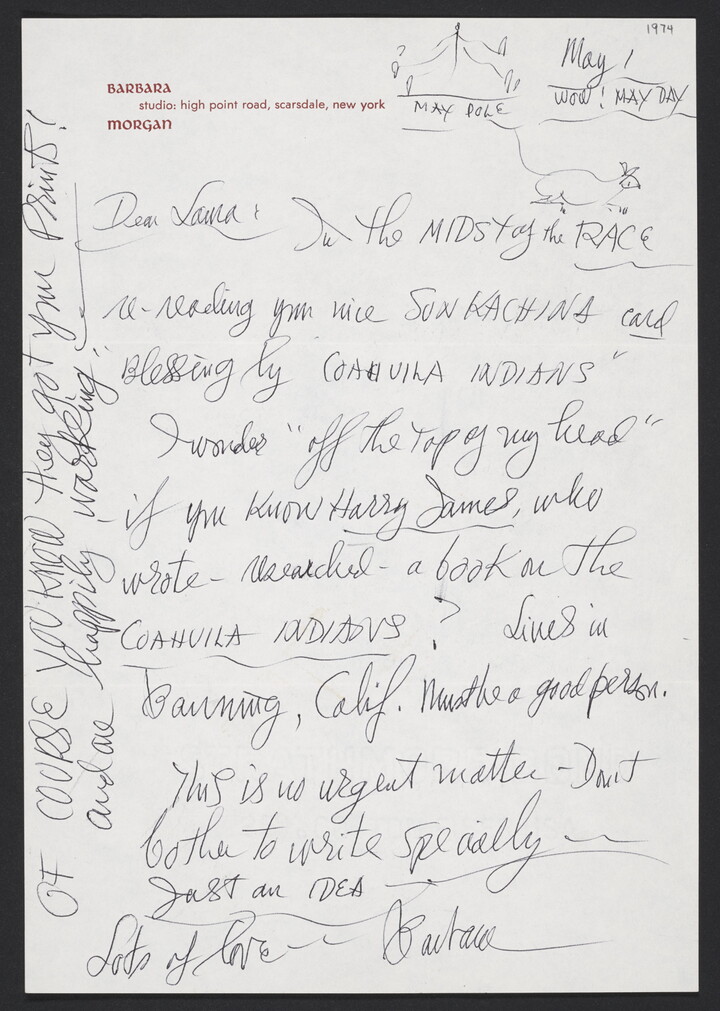 1974
May 1
WOW! MAY DAY
MAY POLE
BARBARA
studio: high point road, scarsdale, new york
MORGAN
Dear Laura: In the MIDST of the RACE
re-reading your nice SUN KACHINA card
Blessing by COAHUILA INDIANS"
I wonder "off the top of my head"
if you KNOW Harry James, who
wrote - researched - a book on the
COAHUILA INDIANS? Lives in
Banning, Calif. Must be a good person.
This is no urgent matter - Don't
bother to write specially —
Just an IDEA —
Lots of love — Barbara
OF COURSE YOU KNOW they got your Prints!
and are happily working"